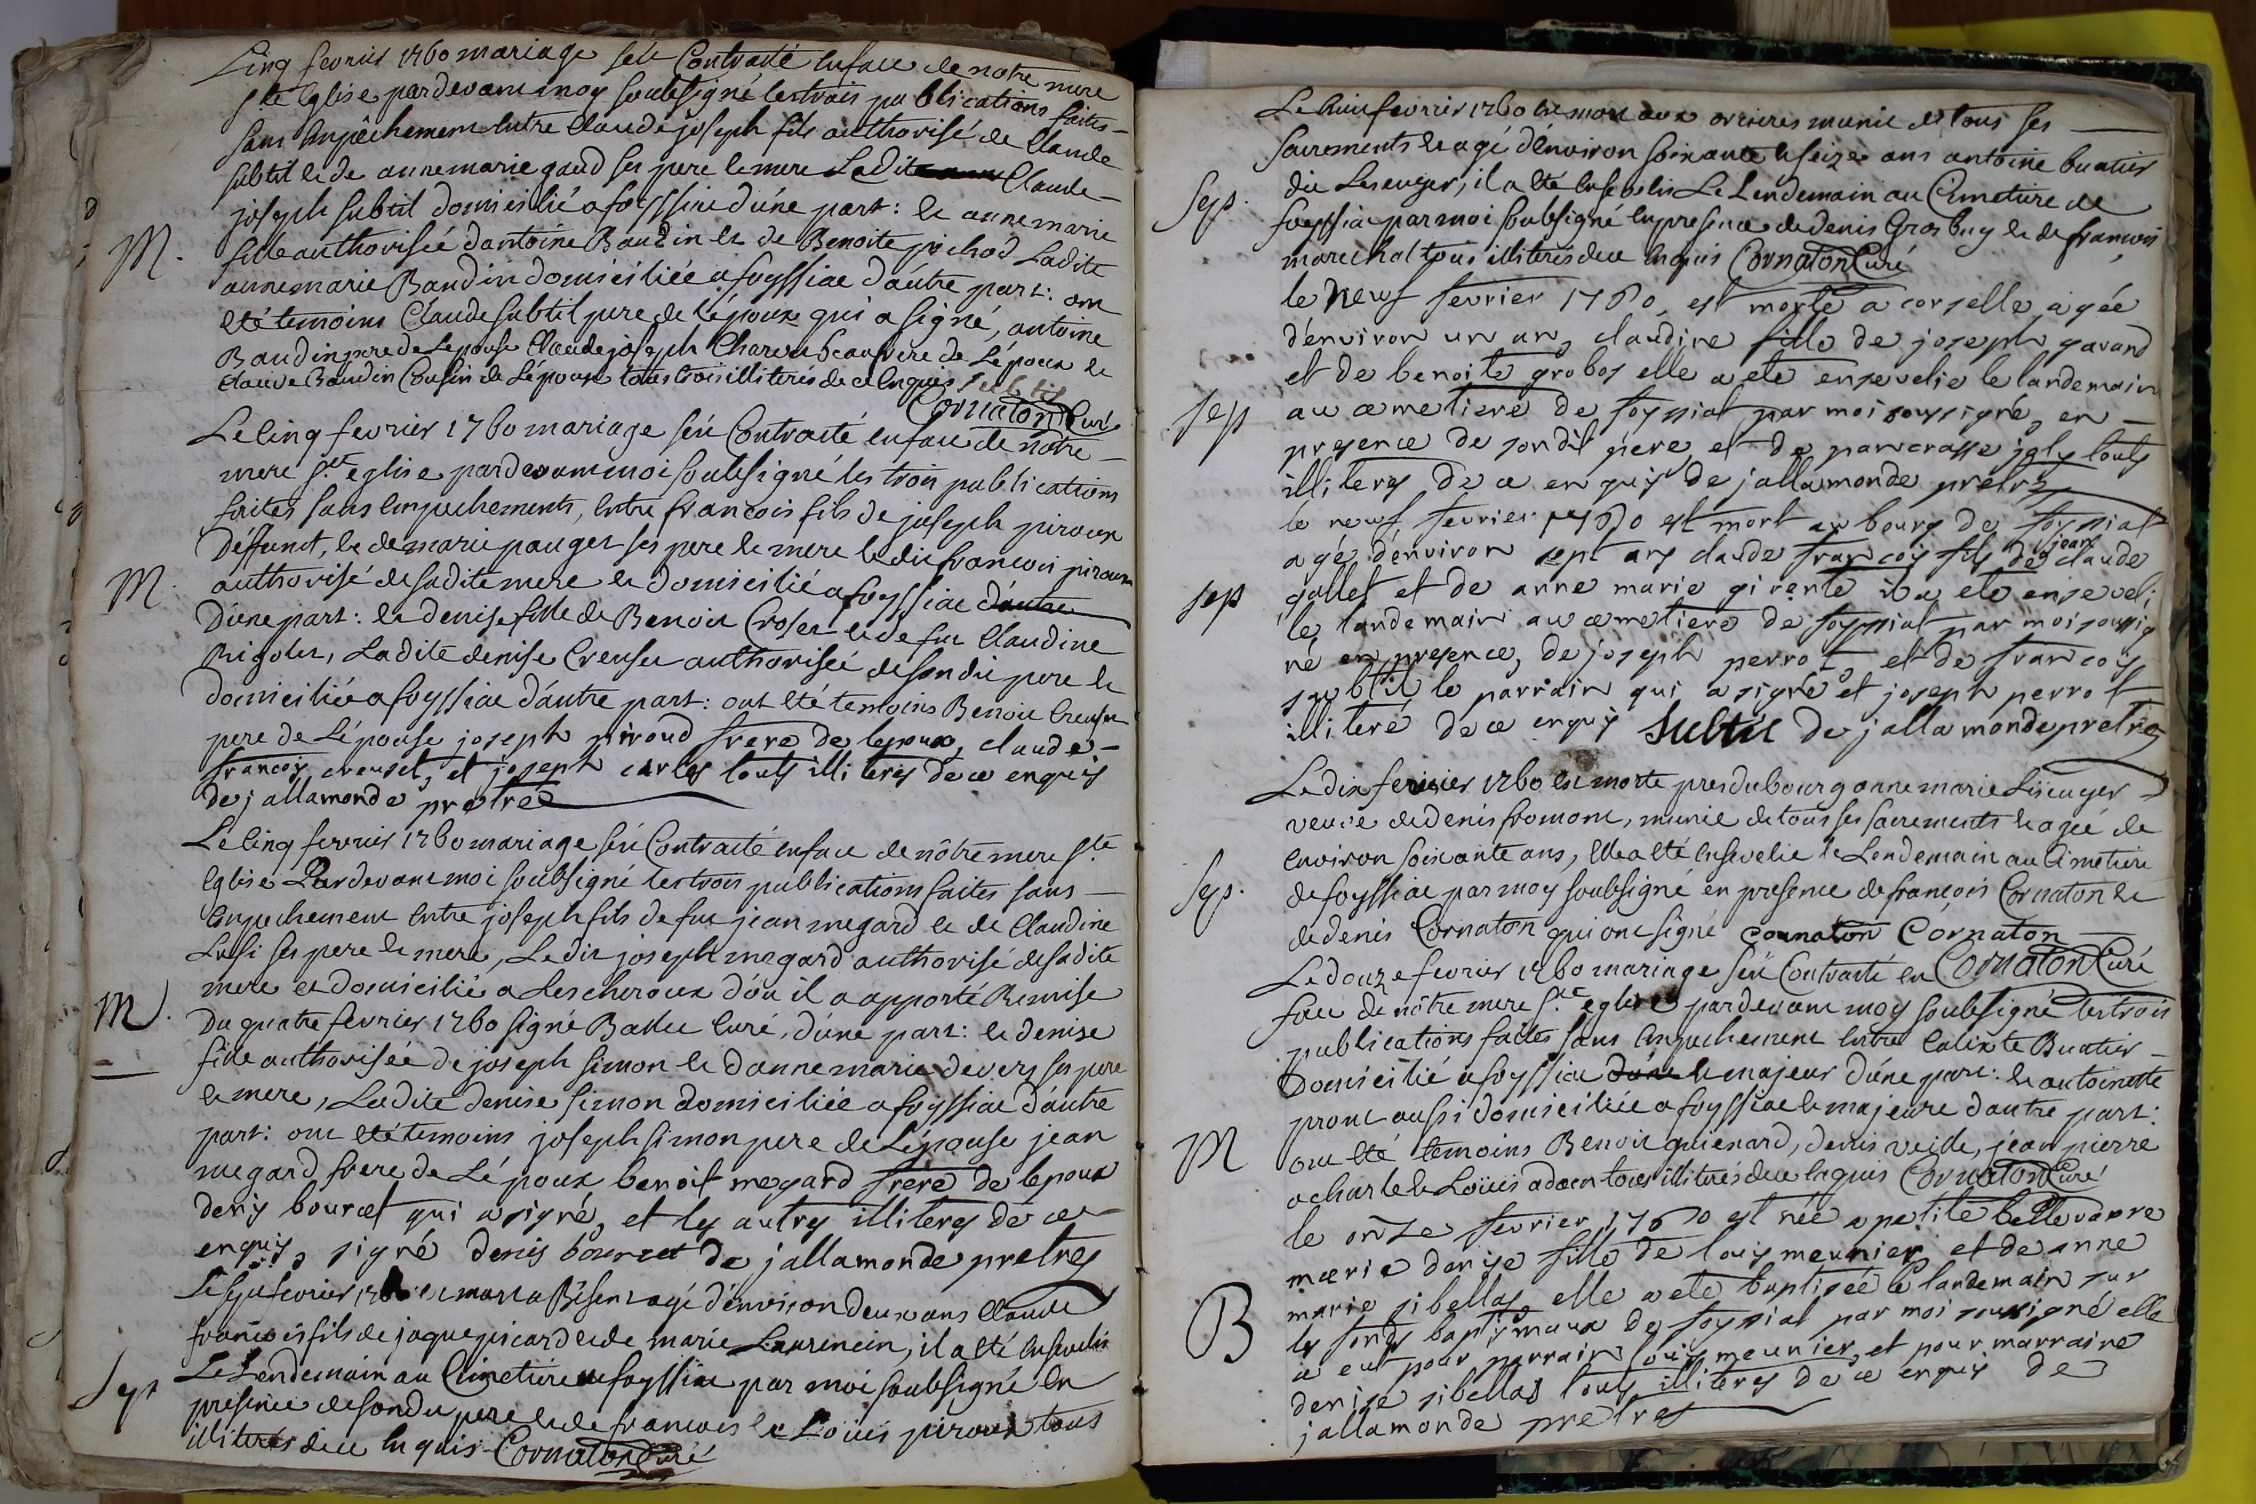 Cinq fevrier 1760 mariage sest Contracté en face de notre mere
ste Eglise pardevant moy soubsigné les trois publications faites
sans Empêchement Entre Claude joseph fils authorisé de Claude
subtil et de anne marie gaud ses pere et mere Ledit Claude
joseph subtil domicilié a foyssia d'une part: et anne marie
M.
fille authorisée d'antoine Baudin et de Benoite pichod Ladite
annemarie Baudin domiciliée a foyssiac d'autre part: ont
eté temoins Claude subtil pere de L'époux qui a signé, antoine
Baudin pere de Lepouse Claude joseph beaufrere de L'époux et
Claude Baudin Cousin de L'épouse tous trois illiterés de ce Enquis Subtil
Cornaton Curé
Le Cinq fevrier 1760 mariage sest Contracté en face de notre
mere ste eglise pardevant moi soubsigné les trois publications
faites sans Empechements, Entre francois fils de joseph piroux
deffunct, et de marie pauget ses pere et mere ledit francois piroux
M.
authorisé de sadite mere et domicilié a foyssiac d'autre
D'une part: et denise fille de Benoit Croset et de fue Claudine
Rigolet, Ladite denise Creuset authorisée de sondit pere et
domiciliée a foyssiac d'autre part: ont eté temoins Benoit Creuset
pere de L'épouse joseph piroud frere de lepoux, claude
francoy creuset, et joseph carles touts illiterés de ce enquis
de jallamonde pretre
Le Cinq fevrier 1760 mariage sest Contracté en face de nôtre mere ste
Eglise Pardevant moi soubsigné les trois publications faites sans
Empechement Entre joseph fils de fue jean megard et de Claudine
ses pere et mere, Ledit joseph megard authorisé de sadite
mere et domicilié a Lescheroux d'où il a apporté Remise
M.
Du quatre fevrier 1760 signé Curé, d'une part: et denise
fille authorisée de joseph simon et d'anne marie devers ses pere
et mere, Ladite denise simon domiciliée a foyssiac d'autre
part: ont eté temoins joseph simon pere de L'epouse jean
megard frere de L'époux benoit megard frere de lepoux
denis bourcet qui a signé, et les autres illiterés de ce
enquis, signé denis bourcet de jallamonde pretre
Le sept fevrier 1760 est mort a Bésent agé d'environ deux ans Claude
françois fils de jaque picard et de marie Laurencin, il a eté Enseveli
Sept
Le Lendemain au Cimetiere foyssia par moi soubsigné En
presence de sondit pere et de francois et Loüis piroux tous
illiterés de ce Enquis Cornaton Curé
Le huit fevrier 1760 est mort aux orcieres munie de tous ses
sacrements et agé d'environ soixante et seize ans antoine buatier
Sep.
dit Leseuyer, il a eté Enseveli Le Lendemain au Cimetiere de
foyssiac par moi soubsigné En presence de denis Gros buy et de francois
marechal tous illiterés de ce Enquis Cornaton Curé
le neuf fevrier 1760, est morte a corselle agée
d'environ un an, claudine fille de joseph gavand
et de benoite grobos elle a eté ensevelie le landemain
sep
au cemetiere de foyssiat par moi soussigné, en
presence de sondit pere, et de pancrasse joly touts
illiterés de ce enquis de jallamonde pretre
le neuf fevrier 1760 est mort au bourg de foyssiat
agé d'environ sept ans claude françois fils de jean claude
sep
gallet et de anne marie girerite il a eté enseveli
le landemain au cemetiere de foyssiat par moi soussig
né en presence, de joseph perrot, et de francoy
subtil le parrain qui a signé et joseph perrot
illiteré de ce enquis Subtil de jallamonde pretre
Le dix fevrier 1760 est morte pres du bourg anne marie Liseuyer
veuve de denis fromont, munie de tous ses sacrements et agée de
Environ soixante ans, Elle a eté Ensevelie le Lendemain au Cimetiere
Sep.
de foyssiac par moy soubsigné en presence de francois Cornaton et
de denis Cornaton qui ont signé Cornaton Cornaton
Cornaton Curé
Le douze fevrier 1760 mariage sest Contracté en
face de nôtre mere ste eglise pardevant moy soubsigné les trois
publications faites sans Empechement Entre Calixte Buatier
Domicilié a foyssiac d'une et majeur d'une part: et antoinette
pront aussi domiciliée a foyssiac et majeure d'autre part:
M
ont eté temoins Benoit guienard, denis veille, jean pierre
ocharle et Loüis adam tous illiterés de ce Enquis Cornaton Curé
le onze fevrier 1760 est née a petite bellevavre
marie denise fille de louis meunier et de anne
marie sibellas, elle a eté baptisée le landemain sur
B
les fonds baptismaux de foyssiat par moi soussigné elle
a eut pour parrain louis meunier, et pour marraine
denise sibellas touts illiterés de ce enquis de
jallamonde pretre